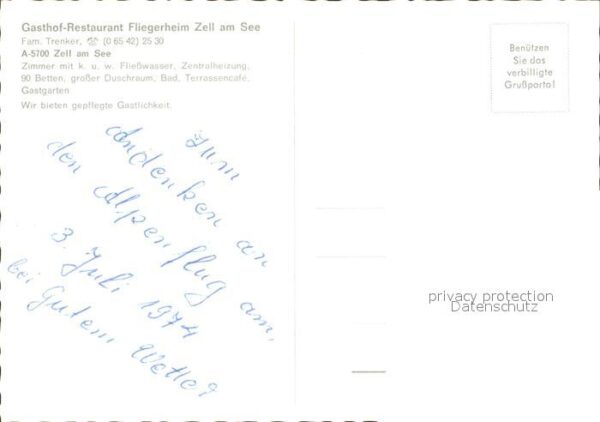 Gasthof-Restaurant Fliegerheim Zell am See
Fam. Trenker, ☎ (0 65 42) 25 30
A-5700 Zell am See
Zimmer mit k. u. w. Fließwasser, Zentralheizung,
90 Betten, großer Duschraum, Bad, Terrassencafé,
Gastgarten
Wir bieten gepflegte Gastlichkeit.
Benützen
Sie das
verbilligte
Grußporto!
Zum
Andenken an
den Alpenflug am,
3. Juli 1974
bei Gutem Wetter
privacy protection
Datenschutz